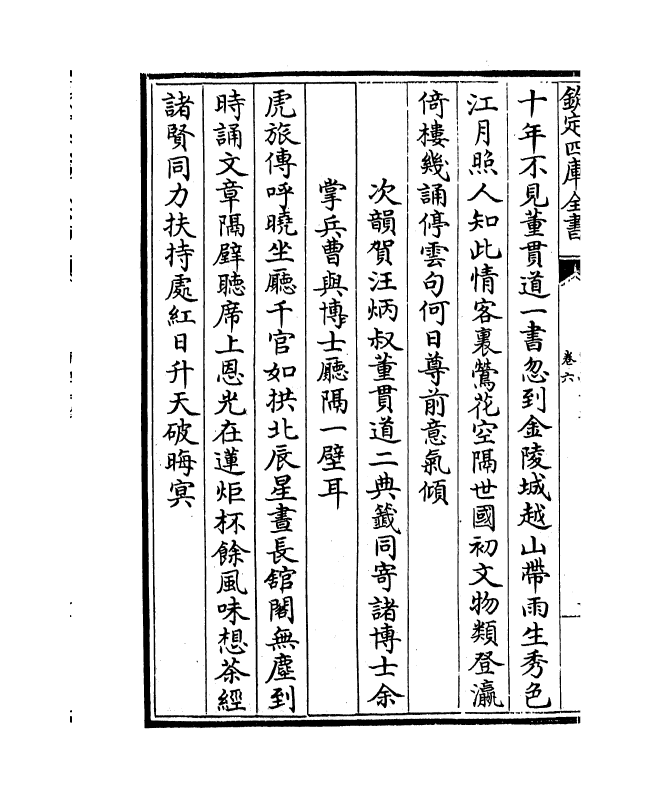 欽定四庫全書
卷六
十年不見董貫道一書忽到金陵城越山帶雨生秀色
江月照人知此情客裏鶯花空隔世國初文物類登瀛
倚樓幾誦停雲句何日尊前意氣傾
次韻賀汪炳叔董貫道二典籖同寄諸博士余
掌兵曹與博士廳隔一壁耳
虎旅傳呼曉坐廳千官如拱北辰星晝長舘閣無塵到
時誦文章隔壁聽席上恩光在蓮炬杯餘風味想茶經
諸賢同力扶持處紅日升天破晦冥